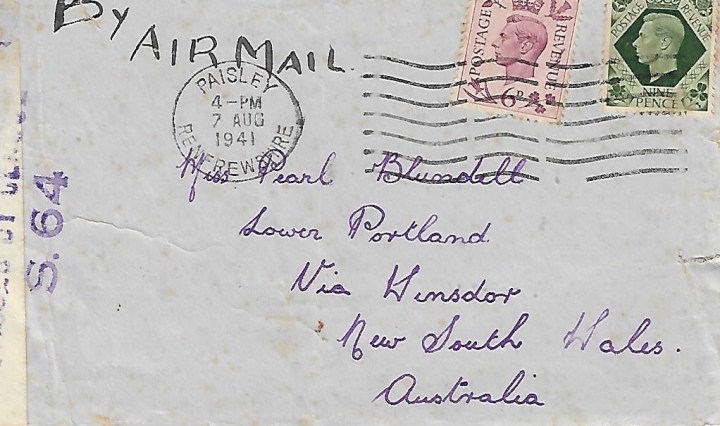 By AIR MAIL.
POSTAGE REVENUE
6D
POSTAGE REVENUE
NINE
PENCE
PAISLEY
4-PM
7 AUG
1941
RENFREWSHIRE
Miss Pearl Blundell
Lower Portland
Via Winsdor
New South Wales.
Australia
S.64